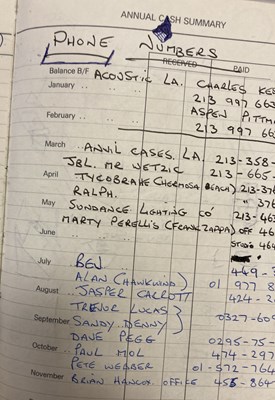 ANNUAL CASH SUMMARY
PHONE NUMBERS
RECEIVED PAID
Balance B/F ACOUSTIC LA. CHARLES
January 213 997
ASPEN
February 213 997
March ANVIL CASES. LA. 213-358-
JBL. MR 213-665-
April TYCOBRAHE (HERMOSA BEACH). 213-
RALPH.
May SUNDANCE LIGHTING CO' 213-
MARTY PERELLIS (FRANK ZAPPA) OFF
June STUDIO
July BEN 449-
ALAN (HAWKWIND) 01 977 8
August JASPER CARROTT 424-
TREVOR LUCAS
September SANDY DENNY 0327-
DAVE PEGG 0295-75-
October PAUL MOL 474-297
PETE WEBBER 01-572-764
November BRIAN HANCOX. OFFICE 455-864